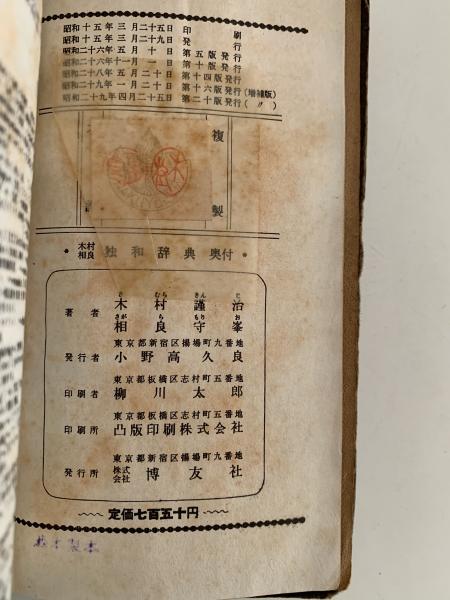 昭和十五年三月二十五日 印刷
昭和十五年三月二十九日 発行
昭和二十六年五月十日 第五版発行
昭和二十六年十一月一日 第十版発行
昭和二十八年五月二十日 第十四版発行
昭和二十九年一月二十日 第十六版発行(増補版)
昭和二十九年四月二十五日 第二十版発行(〃)
複製
木村
相良 独和辞典 奥付
著者 木村謹治
相良守峯
東京都新宿区揚場町九番地
発行者 小野高久良
東京都板橋区志村町五番地
印刷者 柳川太郎
東京都板橋区志村町五番地
印刷所 凸版印刷株式会社
東京都新宿区揚場町九番地
発行所 株式会社 博友社
定価七百五十円